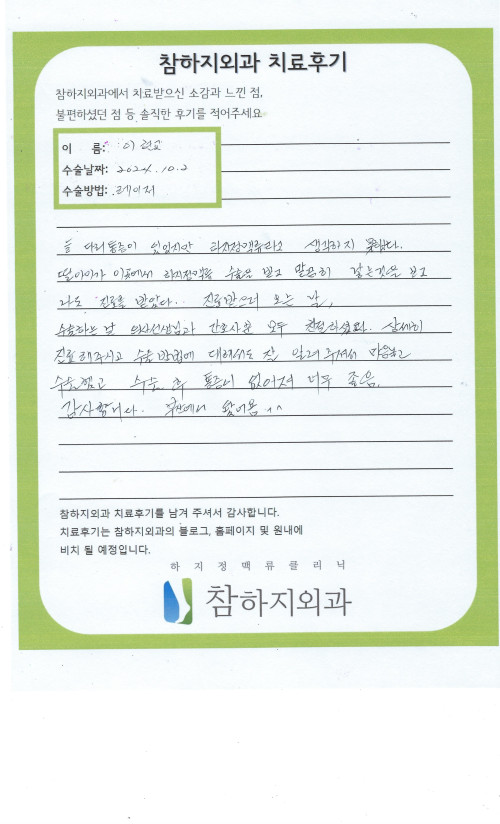 참하지외과 치료후기
참하지외과에서 치료받으신 소감과 느낀 점,
불편하셨던 점 등 솔직한 후기를 적어주세요
이 름: 이
수술날짜: 2024. 10. 2
수술방법: 레이저
다리통증이 있었지만 하지정맥류라고 생각하지 못했다.
딸아이가 이곳에서 하지정맥류 수술을 받고 말끔히 낫는것을 보고
나도 진료를 받았다.. 진료받으러 오는 날,
수술하는 날 의사선생님과 간호사분 모두 친절하셨다. 상세히
진료해주시고 수술방법에 대해서도 잘 알려주셔서 마음놓고
수술했고 수술 후 통증이 없어져 너무 좋음.
감사합니다. 왔어욤 ^^
참하지외과 치료후기를 남겨 주셔서 감사합니다.
치료후기는 참하지외과의 블로그, 홈페이지 및 원내에
비치 될 예정입니다.
하지정맥류클리닉
참하지외과